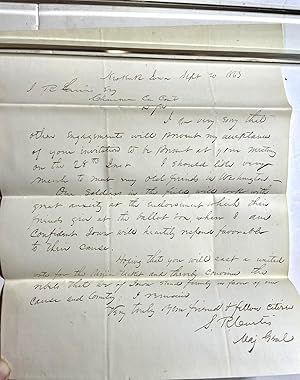 Keokuk Iowa Sept 20 1863
Esq
Chairman Co
I am very sorry that
other engagements will prevent my acceptance
of your invitation to be present at your meeting
on the 28th Inst I should like very
much to meet my old friends in Washington
Our Soldiers in the field will look with
great anxiety at the endorsement which their
friends give at the ballot box where I am
Confident Iowa will heartily respond favorable
to their cause.
Hoping that you will cast a united
vote for the Union ticket and thereby convince the
world that of Iowa stand firmly in favor of our
cause and Country I remain
Very truly Your friend & fellow citizen
S R Curtis
Maj Genl